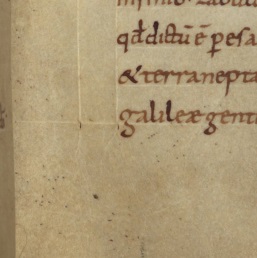 qđ dictū ē p esa
& terra nepta
galileæ gent